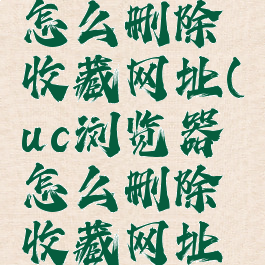 怎么删除
收藏网址(
uc浏览器
怎么删除
收藏网址